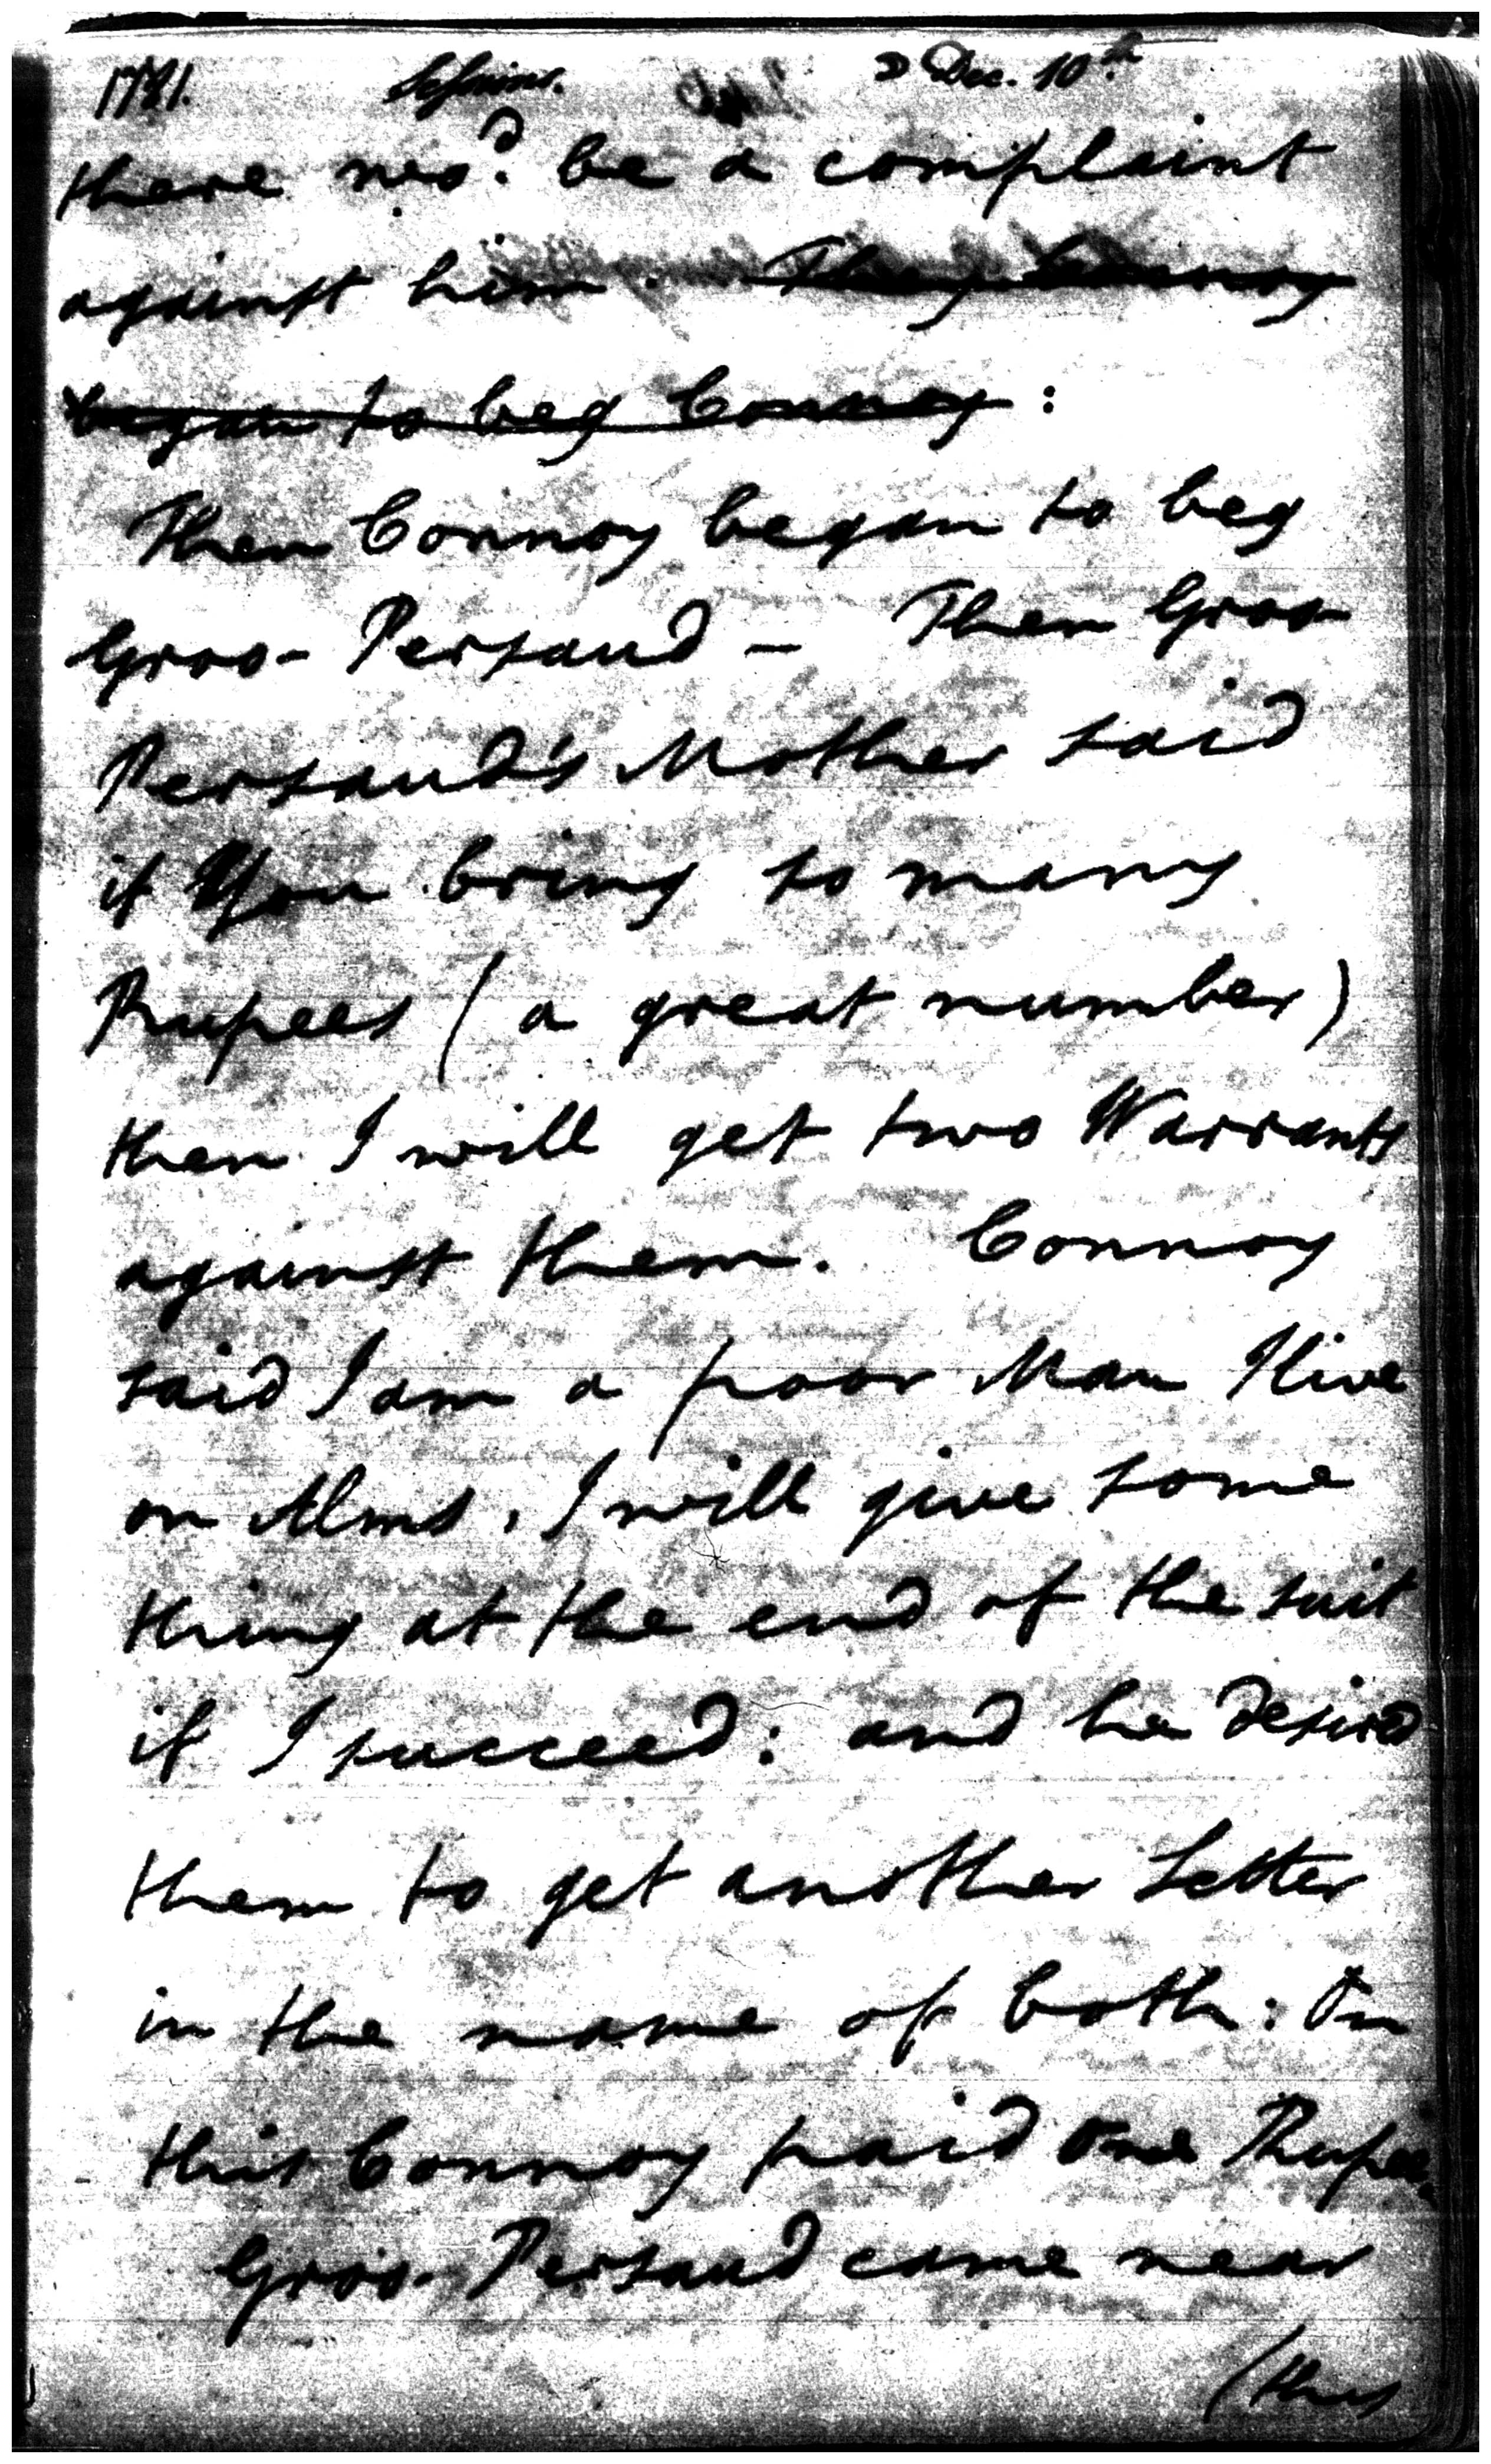 1781. Sessions. Dec. 10th
there wod. be a complaint
against him. They Connoy
began to beg Connoy :
Then Connoy began to beg
Groo- Persaud - Then Groo
Persaud's Mother said
if You bring so many
Rupees ( a great number )
then I will get two Warrants
against them. Connoy
said I am a poor Man I live
on Alms, I will give some
thing at the end of the suit
if I succeed: and he desired
them to get another Letter
in the name of both: On
this Connoy paid One Rupee.
Groo- Persaud came near
(thus